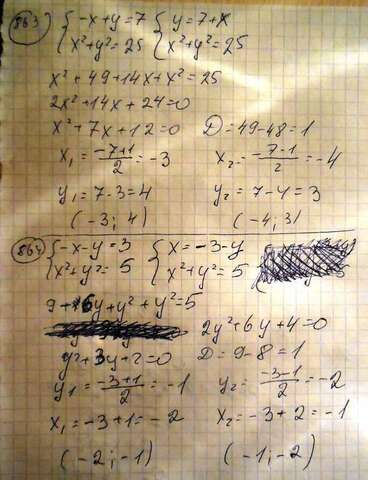 863) { -x+y=7 { y=7+x
x²+y²=25 x²+y²=25
x²+49+14x+x²=25
2x²+14x+24=0
x²+7x+12=0 D=49-48=1
x₁=(-7+1)/2=-3 x₂=(-7-1)/2=-4
y₁=7-3=4 y₂=7-4=3
(-3; 4) (-4; 3)
864) { -x-y=3 { x=-3-y
x²+y²=5 x²+y²=5
9+6y+y²+y²=5
2y²+6y+4=0
y²+3y+2=0 D=9-8=1
y₁=(-3+1)/2=-1 y₂=(-3-1)/2=-2
x₁=-3+1=-2 x₂=-3+2=-1
(-2; -1) (-1; -2)